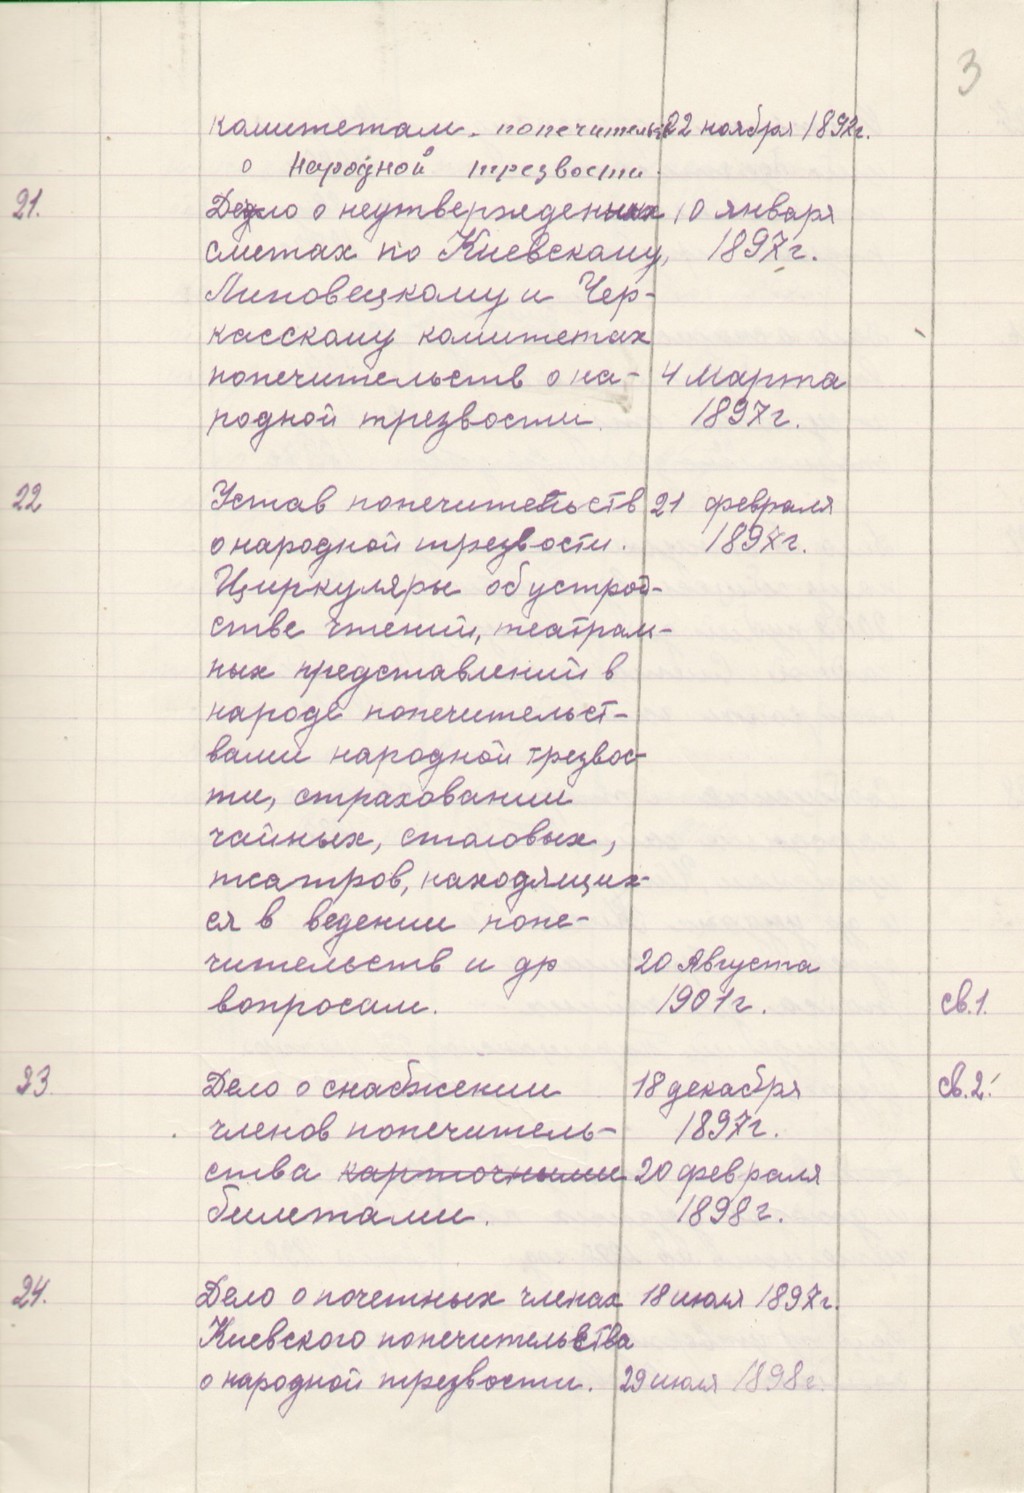 3
комитетам. попечительств 22 ноября 1897г.
о народной трезвости.
21. Дело о неутвержденных 10 января
сметах по Киевскому, 1897г.
Липовецкому и Чер-
касскому комитетах
попечительств о на- 4 марта
родной трезвости. 1897г.
22 Устав попечительств 21 февраля
о народной трезвости. 1897г.
Циркуляры об устрой-
стве чтений, театраль-
ных представлений в
народе попечительст-
вами народной трезвос-
ти, страховании
чайных, столовых,
театров, находящих-
ся в ведении попе-
чительств и др 20 Августа
вопросам. 1901г. св.1.
23 Дело о снабжении 18 декабря св.2.
членов попечитель- 1897г.
ства карточными 20 февраля
билетами. 1898г.
24. Дело о почетных членах 18 июля 1897г.
Киевского попечительства
о народной трезвости. 29 июля 1898г.